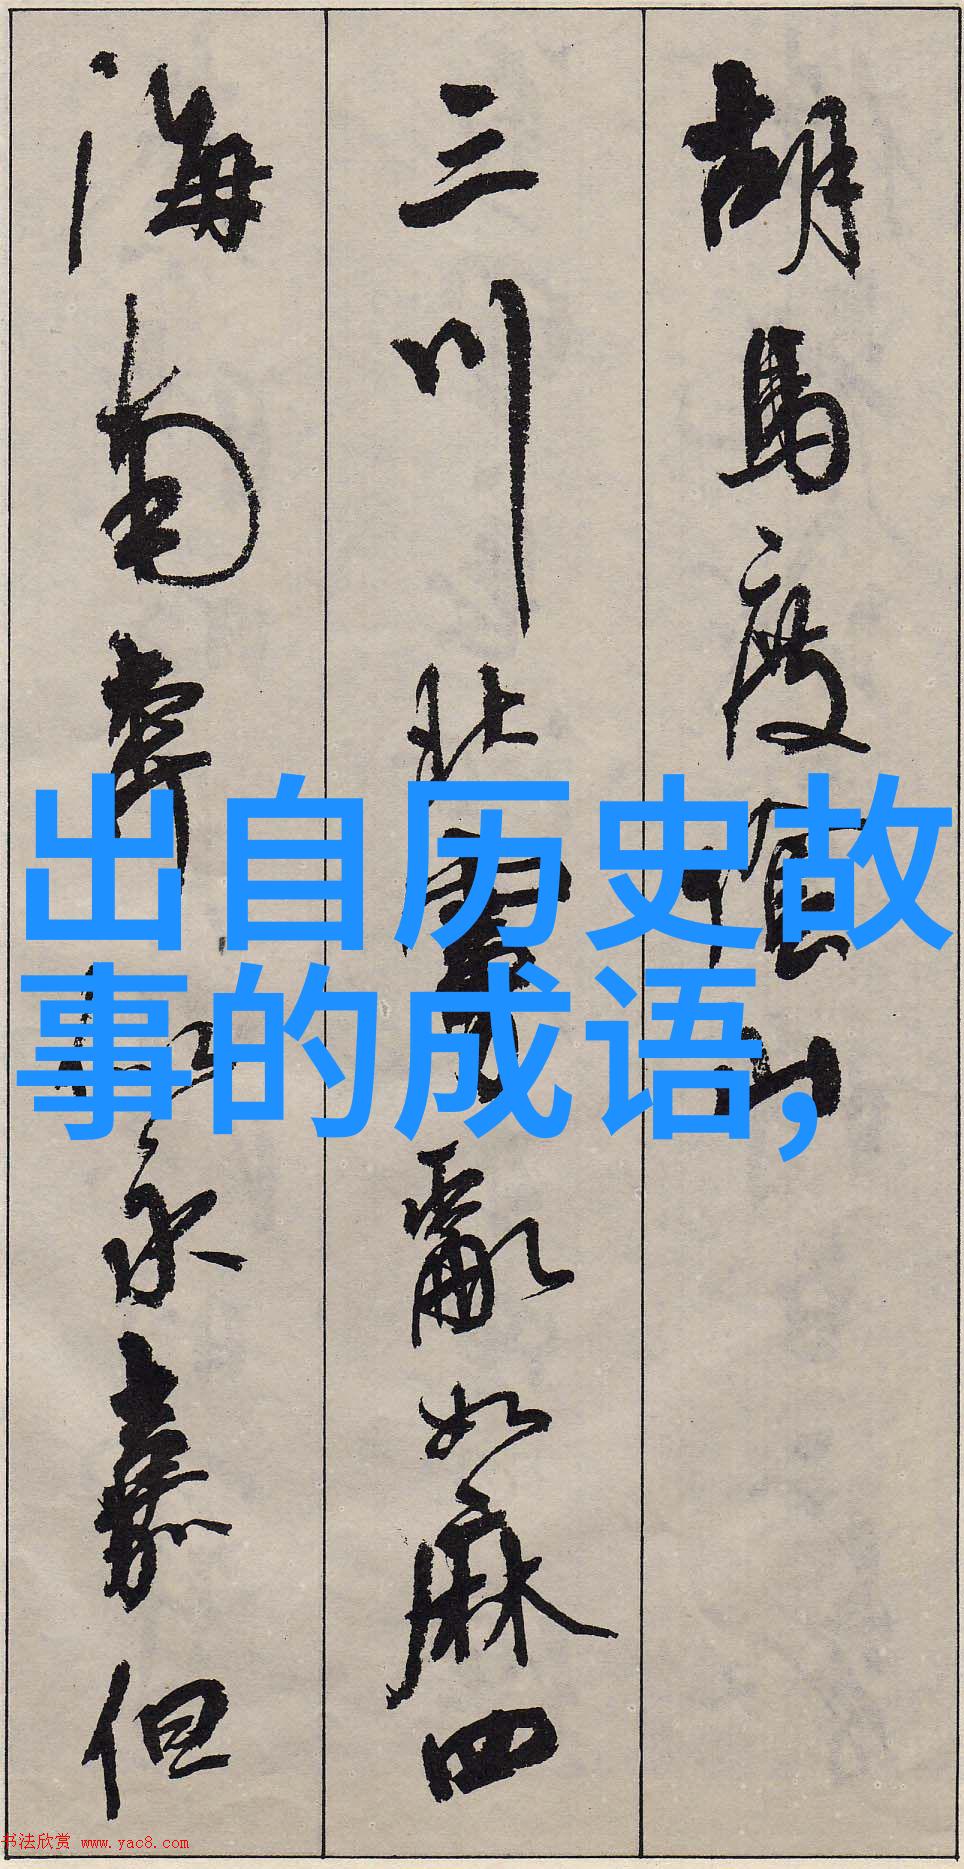 胡馬度陰山
三川北虜亂如麻四
海南奔似永嘉但
出自历史故
事的成语,
书法欣赏 www.yac8.com